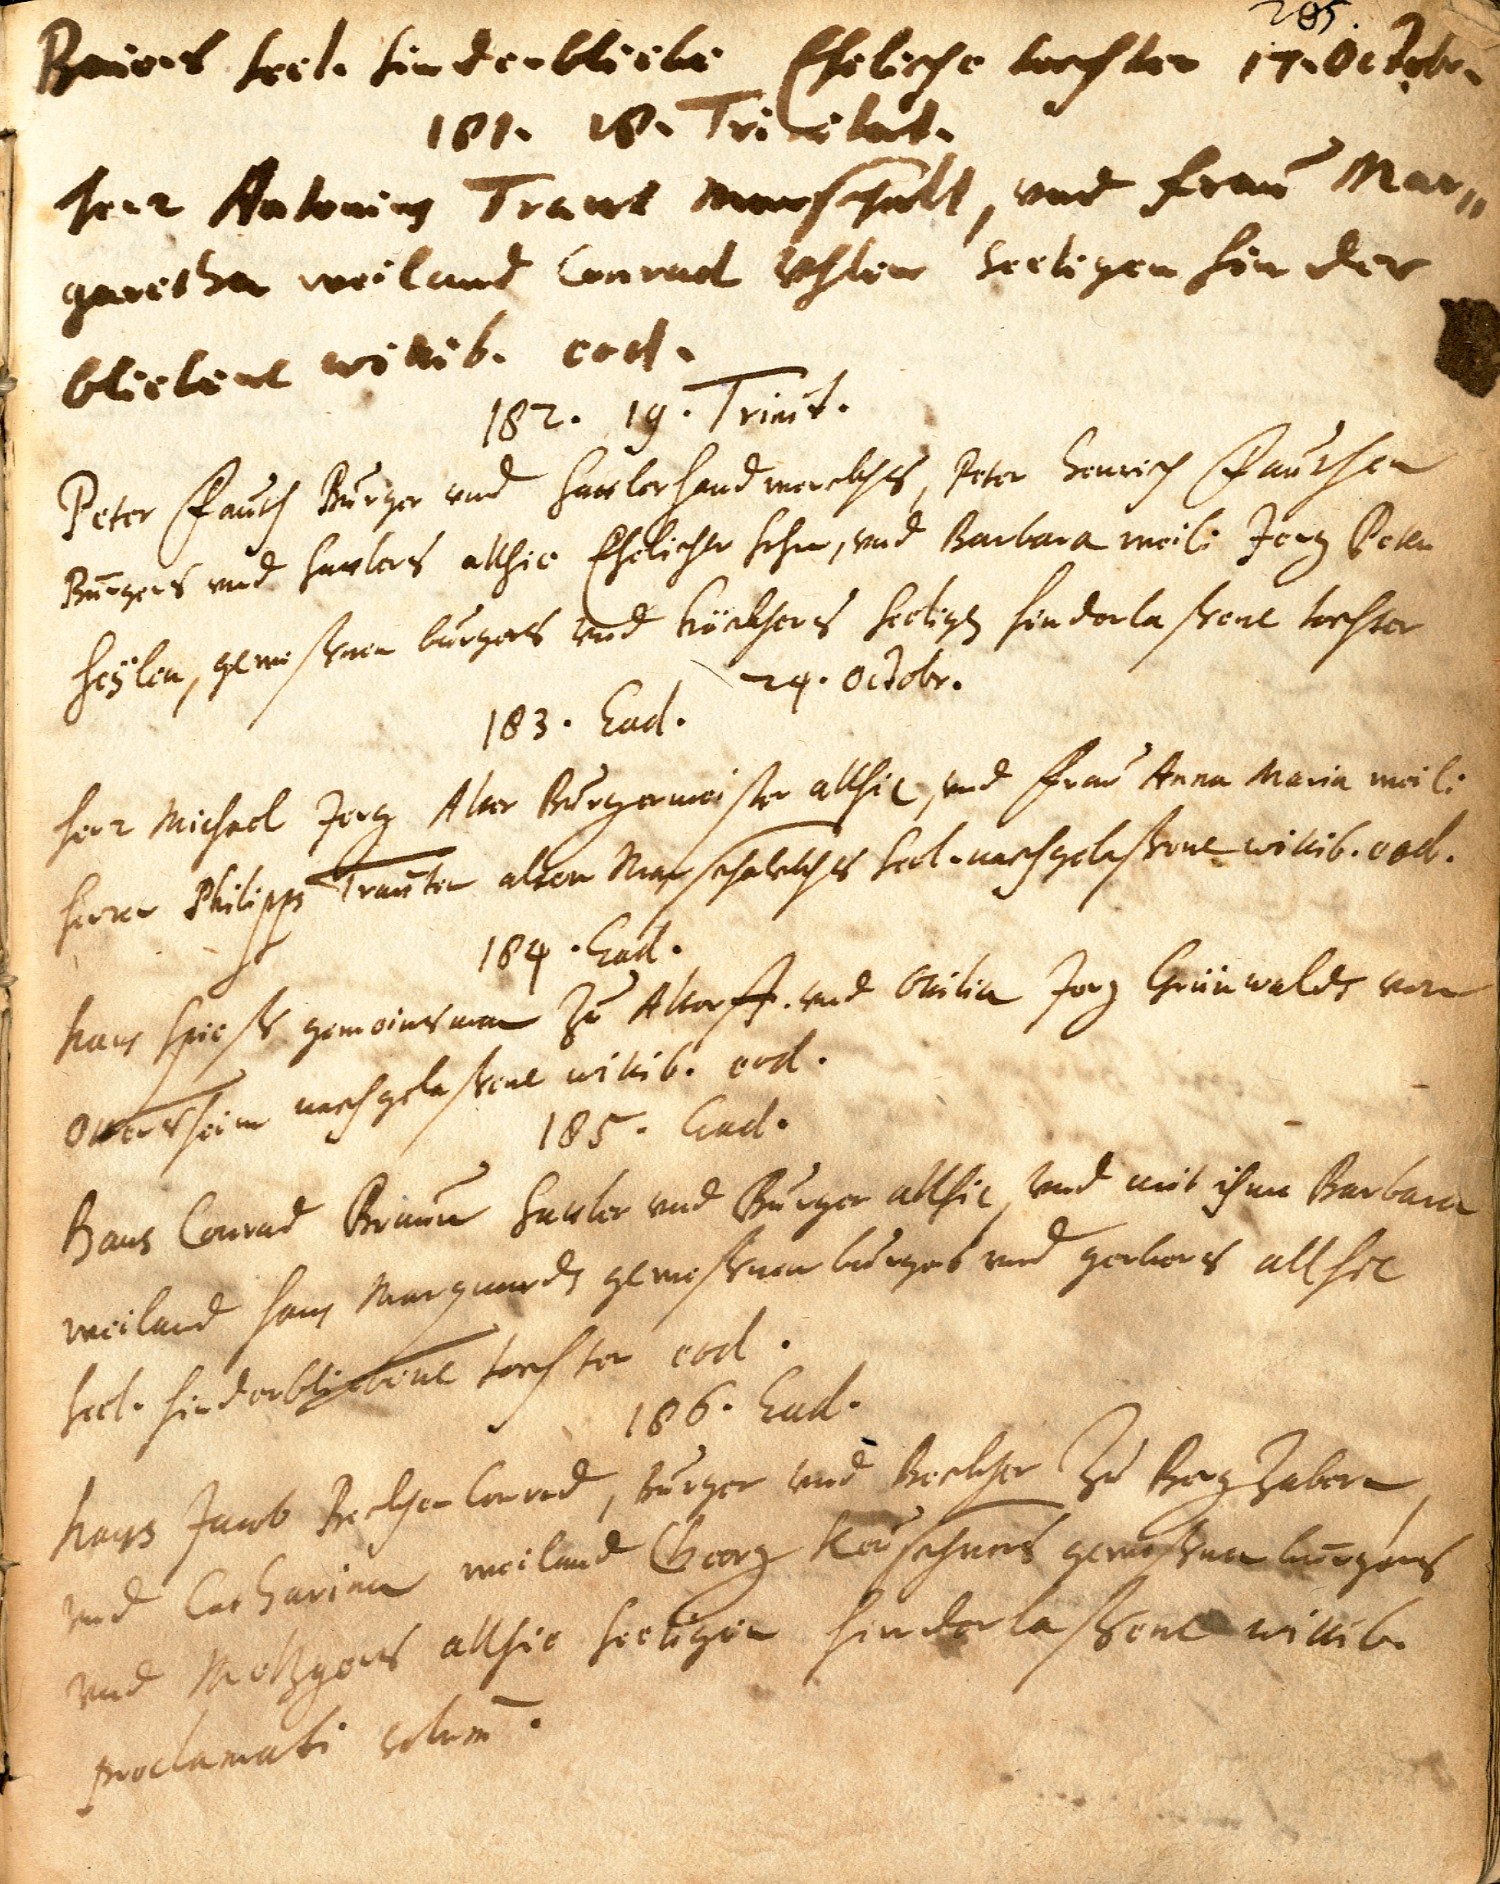 285.
Bauers seel. hinderbliebe Eheliche tochter 17. Octobr.
181. 18. Trinitat.
Herr Antonius Traut Marschalt, und fraw Mar„
garetha weiland Conrad Uhlen Seeligen hinder
bliebene wittib. eod.
182. 19. Trinit.
Peter Fauth Burger und handwerckhs, Peter Henrich Fauthen
Burgers und allhie Ehelicher sohn, und Barbara weil: Jerg Peter
Heylen, geweßnen burgers und seeligen hinderlaßene tochter
24. Octobr.
183. Ead.
Herr Michael Jerg Alter Burgermeister allhie, und Fraw Anna Maria weil:
Herren Philipps Trauten alten Marschalckhs seel. nachgelaßene wittib. eod.
184. Ead.
Hans Spieß gemeinsman zu Altorff. und Otilia Jerg Grünwalds von
Ottersheim nachgelaßene wittib. eod.
185. Ead.
Hans Conrad Braun und Burger allhie, und mit ihme Barbara
weiland Hans Marquards geweßnen burgers und gerbers allhie
seel. hinderbliebene tochter eod.
186. Ead.
Hans Jacob Beckhen Conrad, Burger und Beckher zu Berg Zabern,
und Catharina weiland Georg Keuschners geweßnen burgers
und Metzgers allhie seeligen hinderlaßene wittib.
proclamati